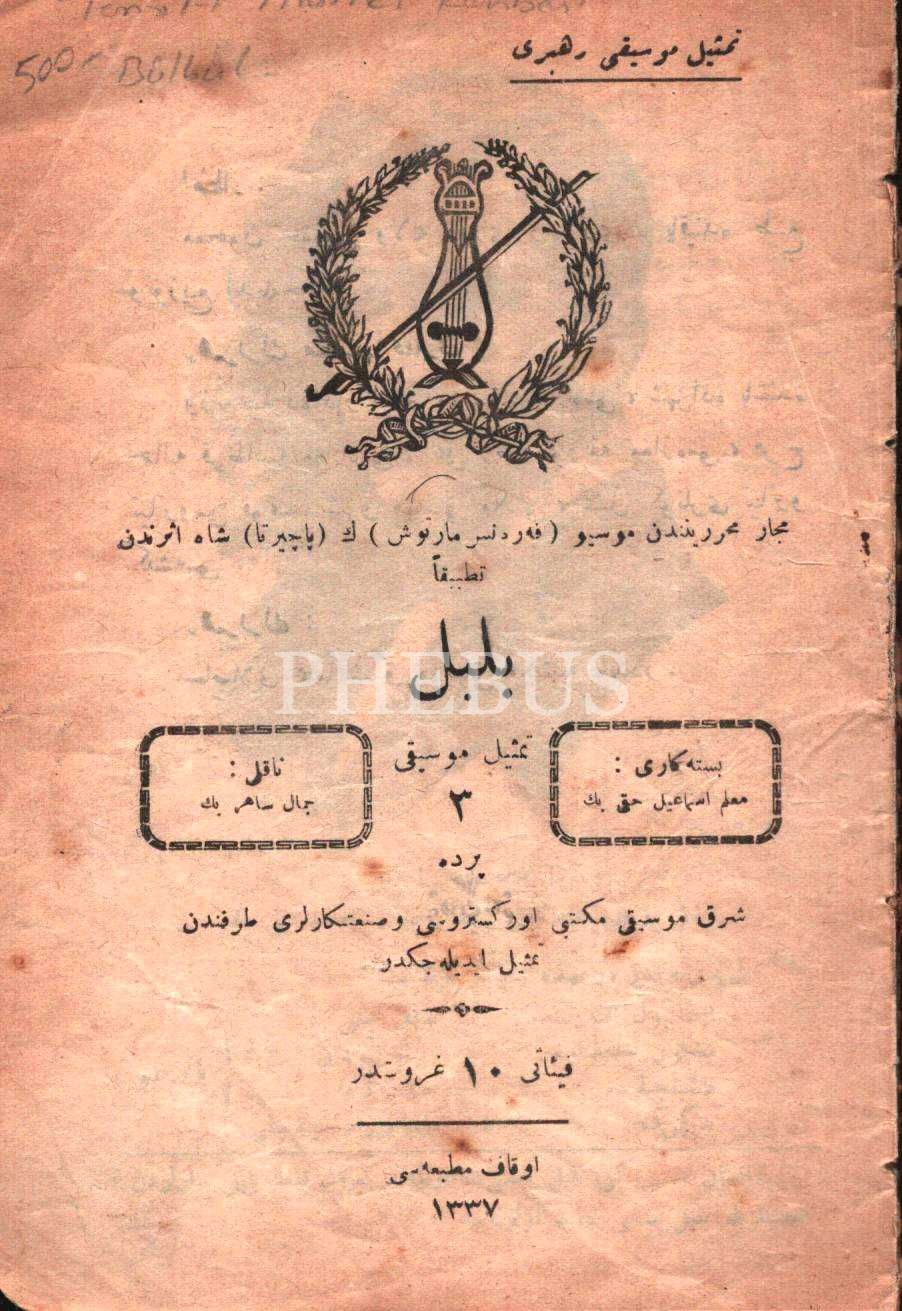 500 Bülbül
تمثيل موسيقى رهبرى
مجار محررينندن موسيو (فەردنسر مارتوش) ك (پاچيرتا) شاه اثرندن
تطبيقاً
بلبل
PHEBUS
تمثيل موسيقى
٣
پرده
بسته‌كارى :
معلم اسماعيل حقى بك
ناقلى :
جمال ساهر بك
شرق موسيقى مكتبى اوركستروسى وصنعتكارلرى طرفندن
تمثيل ايديله‌جكدر
فيئاتى ١٠ غروشدر
اوقاف مطبعه‌سى
١٣٣٧